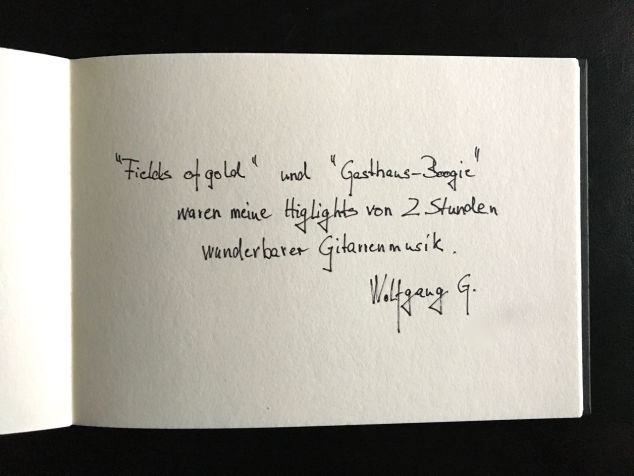 "Fields of gold" und "Gasthaus-Boogie"
waren meine Higlights von 2 Stunden
wunderbarer Gitarrenmusik.
Wolfgang G.